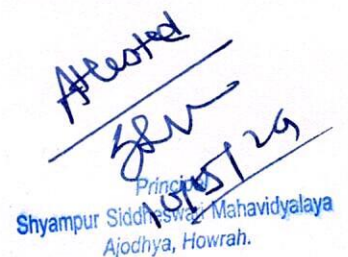 Attested
10/5/29
Principal
Shyampur Siddheswari Mahavidyalaya
Ajodhya, Howrah.